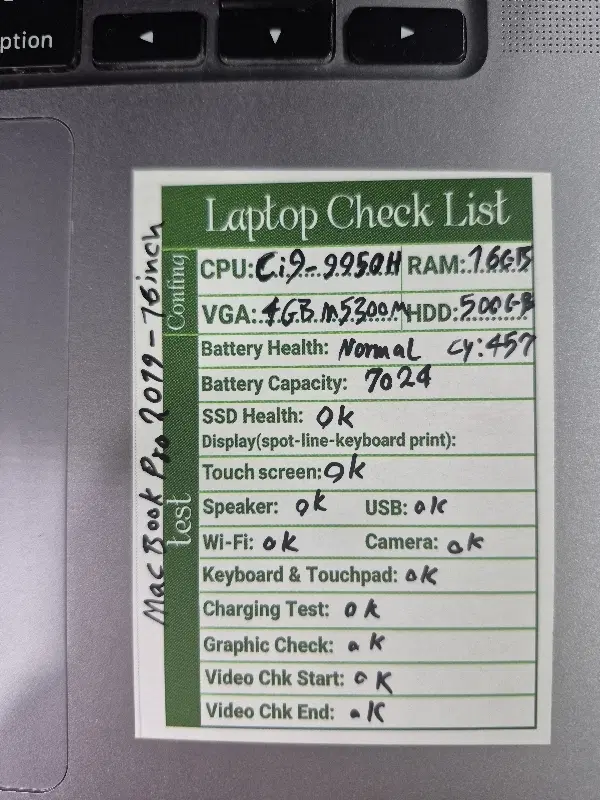 ption
Laptop Check List
MacBook Pro 2019-16inch
Config
CPU: Ci9-9950H RAM: 16GB
VGA: 4GB m5300M HDD: 500GB
test
Battery Health: Normal cy:457
Battery Capacity: 7024
SSD Health: Ok
Display(spot-line-keyboard print):
Touch screen: Ok
Speaker: ok USB: ok
Wi-Fi: ok Camera: ok
Keyboard & Touchpad: ok
Charging Test: ok
Graphic Check: ok
Video Chk Start: ok
Video Chk End: ok